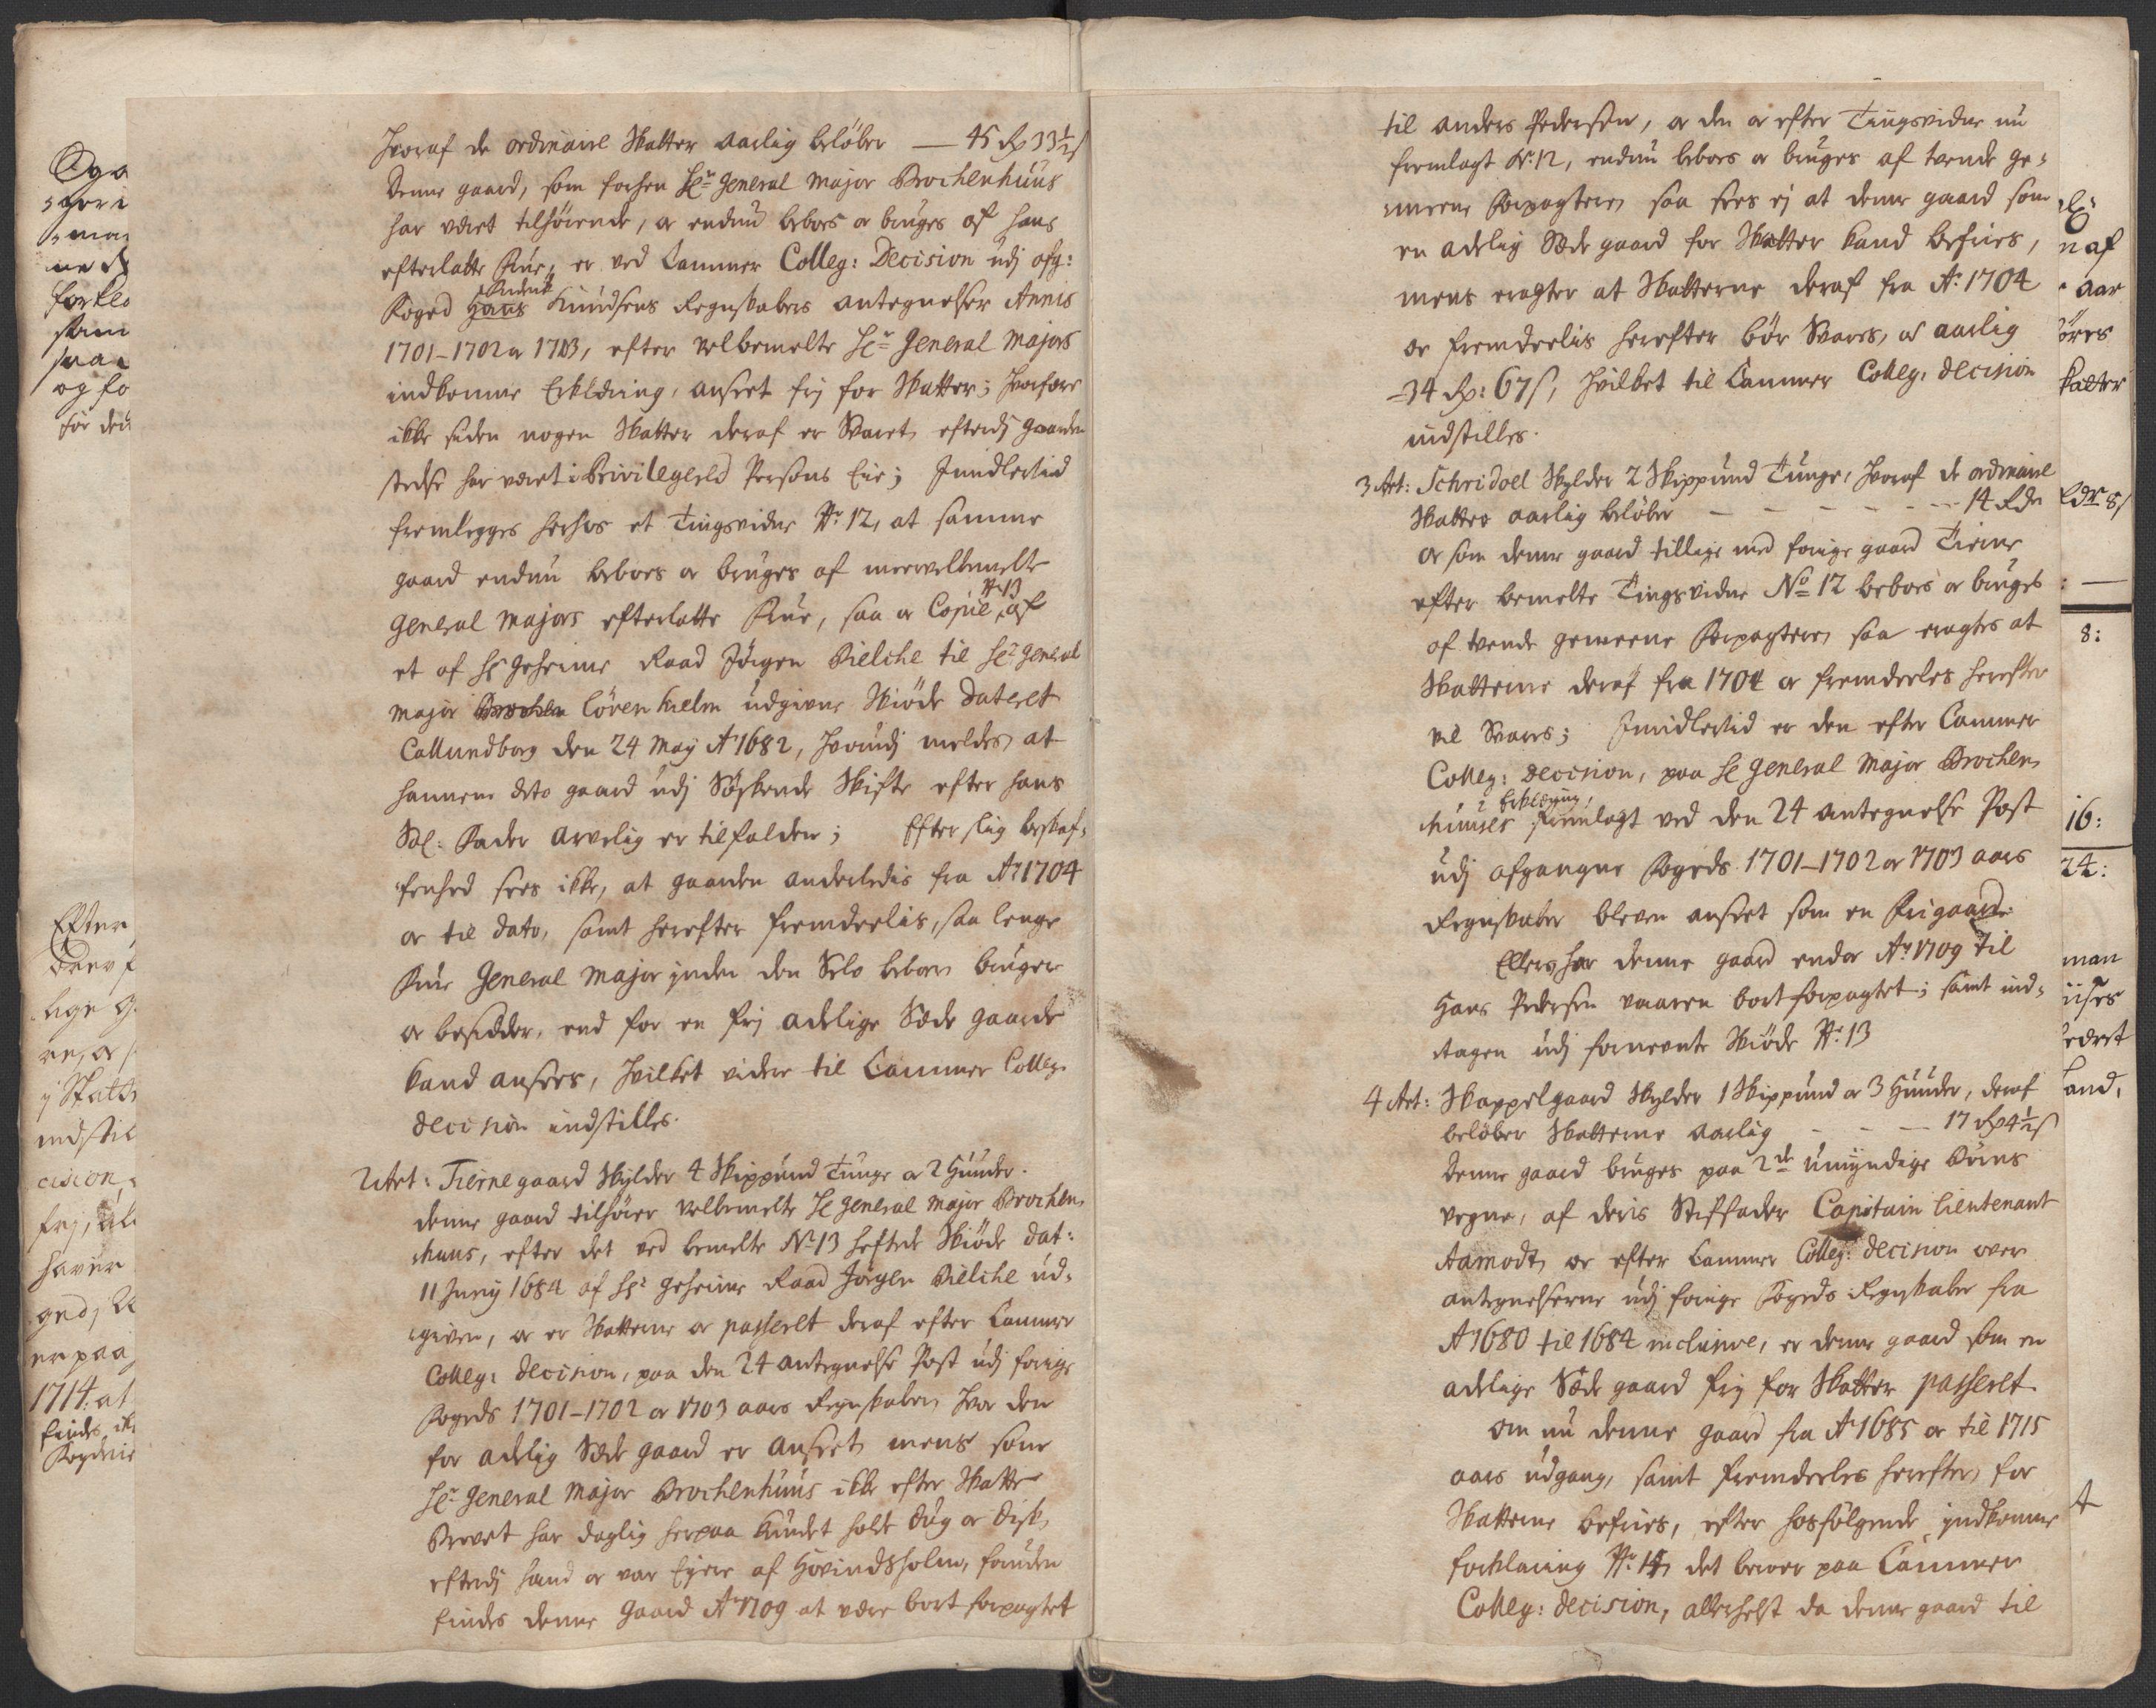 hvoraf de ordinaire Skatter aarlig beløber — 45 Rd 33½ s
Denne gaard, som forhen Hr. General Major Brochenhuus
har været tilhørende, og endnu beboes og bruges af hans
efterlatte Frue, er ved Cammer Colleg: Decision udj afg:
Foged Hans Knudsens Regnskabers antegnelser Annis
1701-1702 og 1703, efter velbemelte Hr. General Majors
indkomne Erklæring, anseet frj for Skatter; hvorfore
ikke siden nogen Skatter deraf er Svaret, efterdj gaarden
stedse har været i Privilegered Persons Eie; Imidlertid
fremlegges herhos et Tingsvidne No. 12, at samme
gaard endnu beboes og bruges af meervelbemelte
No. 13
General Majors efterlatte Frue, saa og Copie af
et af Hr. Geheime Raad Jørgen Bielche til Hr. General
Major Løvenhielm udgivne Skiøde dateret
Callundborg den 24 May Ao 1682, hvorudj meldes, at
hannem dito gaard udj Søskende Skifte efter hans
Sal: Fader arvelig er tilfalden; Efter slig beskaf-
fenhed sees ikke, at gaarden anderledis fra Ao 1704
og til dato, samt herefter fremdeelis, saa lenge
Frue General Major inden den Selv beboer bruger
og besidder, end for en frj adelige Sæde gaarde
kand ansees, hvilket videre til Cammer Colleg.
decision indstilles.
2 Art: Tierne gaard Skylder 4 Skippund Tunge og 2 Huuder.
denne gaard tilhører velbemelte Hr General Major Brochen-
huus, efter det ved bemelte No 13 heftede Skiøde dat:
11 Junij 1684 af Hr. Geheime Raad Jørgen Bielche ud-
given, og er Skatterne og passeret deraf efter Cammer
Colleg: decision, paa den 24 antegnelse Post udj forrige
Fogeds 1701-1702 og 1703 aars Regnskaber, hvor den
for adelig Sæde gaard er anseet, mens som
Hr. General Major Brochenhuus ikke efter Skatte
Brevet har daglig herpaa kundet holde dug og disk,
efterdj hand og var Ejere af Hovindsholm, foruden
findes denne gaard Ao 1709 at være bort forpagtet
til anders Pedersen, og den og efter Tingsvidne nu
fremlagt No. 12, endnu beboes og bruges af tvende ge-
meene Forpagtere, saa sees ej at denne gaard som
en adelig Sæde gaard for Skatter kand befries,
mens eragter at Skatterne deraf fra Ao. 1704
og fremdeelis herefter bør Svares, af aarlig
34 Rd: 67 s, hvilket til Cammer Colleg: decision
indstilles.
3 Art: Schridoel Skylder 2 Skippund Tunge, hvoraf de ordinaire
Skatter aarlig beløber — — — — — 14 Rdr
og som denne gaard tillige med forrige gaard Tierne
efter bemelte Tingsvidne No 12 beboes og bruges
af tvende gemeene Forpagtere, saa eragtes at
Skatterne deraf fra 1704 og fremdeeles herefter
vil Svares; Imidlertid er den efter Cammer
Colleg: decision, paa Hr General Major Brochen-
Erklæring,
huuses fremlagt ved den 24 antegnelse Post
udj afgangne Fogeds 1701-1702 og 1703 aars
Regnskaber bleven anseet som en Frigaard.
Ellers har denne gaard endog Ao 1709 til
Hans Pedersen væeren bortforpagtet; samt ind-
tagen udj fornevnte Skiøde No. 13
4 Art: Skappelgaard Skylder 1 Skippund og 3 Huuder, deraf
beløber Skatterne aarlig — — — 17 Rd 4½ s
Denne gaard bruges paa 2de umyndige Børns
vegne, af deris Stiffader Capitain Lieutenant
Aamodt, og efter Cammer Colleg: decision over
antegnelserne udj forrige Fogeds Regnskaber fra
Ao 1680 til 1684 inclusive, er denne gaard som en
adelige Sæde gaard frj for Skatter passeret.
Om nu denne gaard fra Ao 1685 og til 1715
aars udgang, samt fremdeeles herefter, for
Skatterne befries, efter hosfølgende indkomne
forklaring No. 14, det beroer paa Cammer
Colleg: decision, allerhelst da denne gaard til